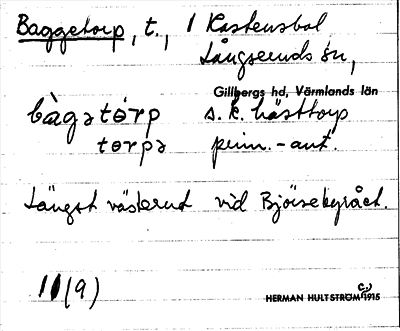 Baggetorp, t., 1 Kastensbol
Långseruds sn,
Gillbergs hd, Värmlands län
bàgatórp s. k. hästtorp
torpa prim. - ant.
Längst västerut vid Bjursebyrået.
11 (9)
HERMAN HULTSTRÖM c.) 1915